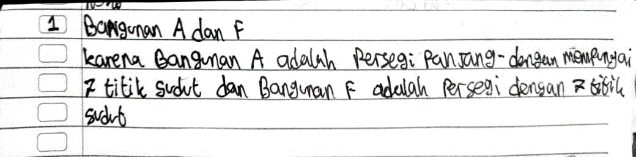 1 Bangunan A dan F
karena Bangunan A adalah Persegi Panjang - dengan mempunyai
7 titik sudut dan Bangunan F adalah Persegi dengan 7 titik
sudut